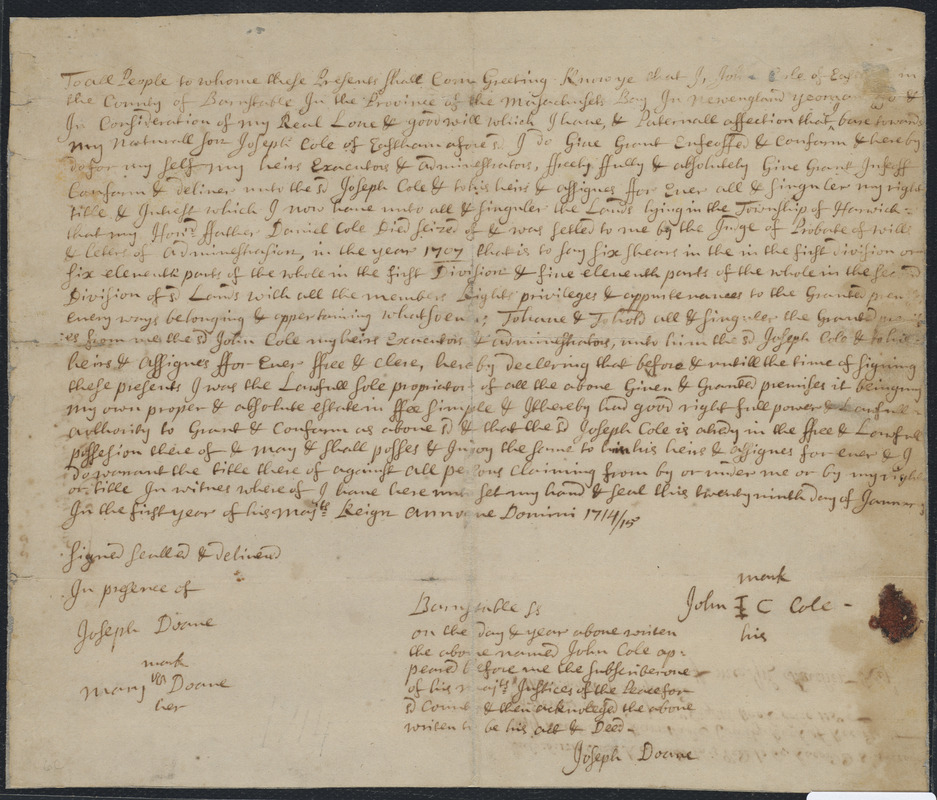 To all People to whome these Presents shall Come Greeting. Know ye that I, John Cole of in
the County of Barnstable In the Province of the Masachusets Bay In Newengland yeoman &
In Consideration of my Real Love & good will which I have, & Paternall affection that bare towards
my Naturall Son Joseph Cole of Eastham afores:d I do Give Grant Enfeoffed & Conform & hereby
do for my self my heirs Executors & Administrators, ffreely ffully & absolutely Give Grant Infeoff
Conform & deliver unto the sd Joseph Cole & to his heirs & assignes ffor Ever all & singuler my right
title & Intrest which I now have unto all & singuler the Lands lying in the Township of Harwich -
that my Hon:d ffather Daniel Cole Died seized of & was setled to me by the Judge of Probate of wills
& leters of Administrasion, in the year 1707 that is to say six shears in the in the first division or
six eleventh parts of the whole in the first Division & five eleventh parts of the whole in the second
Division of sd Lands with all the members Rights privileges & appurtenances to the Granted
every ways belonging & appertaining whatsoever, To have & To hold all & singuler the Granted
from me the sd John Cole my heirs Executors & administrators, unto him the sd Joseph Cole & to his
heirs & assignes ffor Ever ffree & clere, hereby declering that before & untill the time of signing
these presents I was the Lawfull sole propriator of all the above Given & Granted premises it belonging
my own proper & absolute estate in ffee simple & I thereby had good right full power & Lawfull
authority to Grant & Conform as above sd & that the sd Joseph Cole is alredy in the ffree & Lawfull
possesion there of & may & shall posses & Injoy the same to him his heirs & assignes for ever & I
do warant the title there of against all persons claiming from by or under me or by my right
or title In witnes where of I have here unto set my hand & seal this twenty ninth day of January
In the first year of his Maj:ts Reign Domini 1714/15
Signed sealled & delivered
In presence of
Joseph Doane
mark
Mary Doane
her
mark
John I C Cole -
his
Barnstable ss
on the day & year above writen
the above named John Cole ap:
peared before me the subscriber one
of his Maj:ts Justices of the Peace for
sd & then acknoleged the above
writen to be his act & Deed -
Joseph Doane